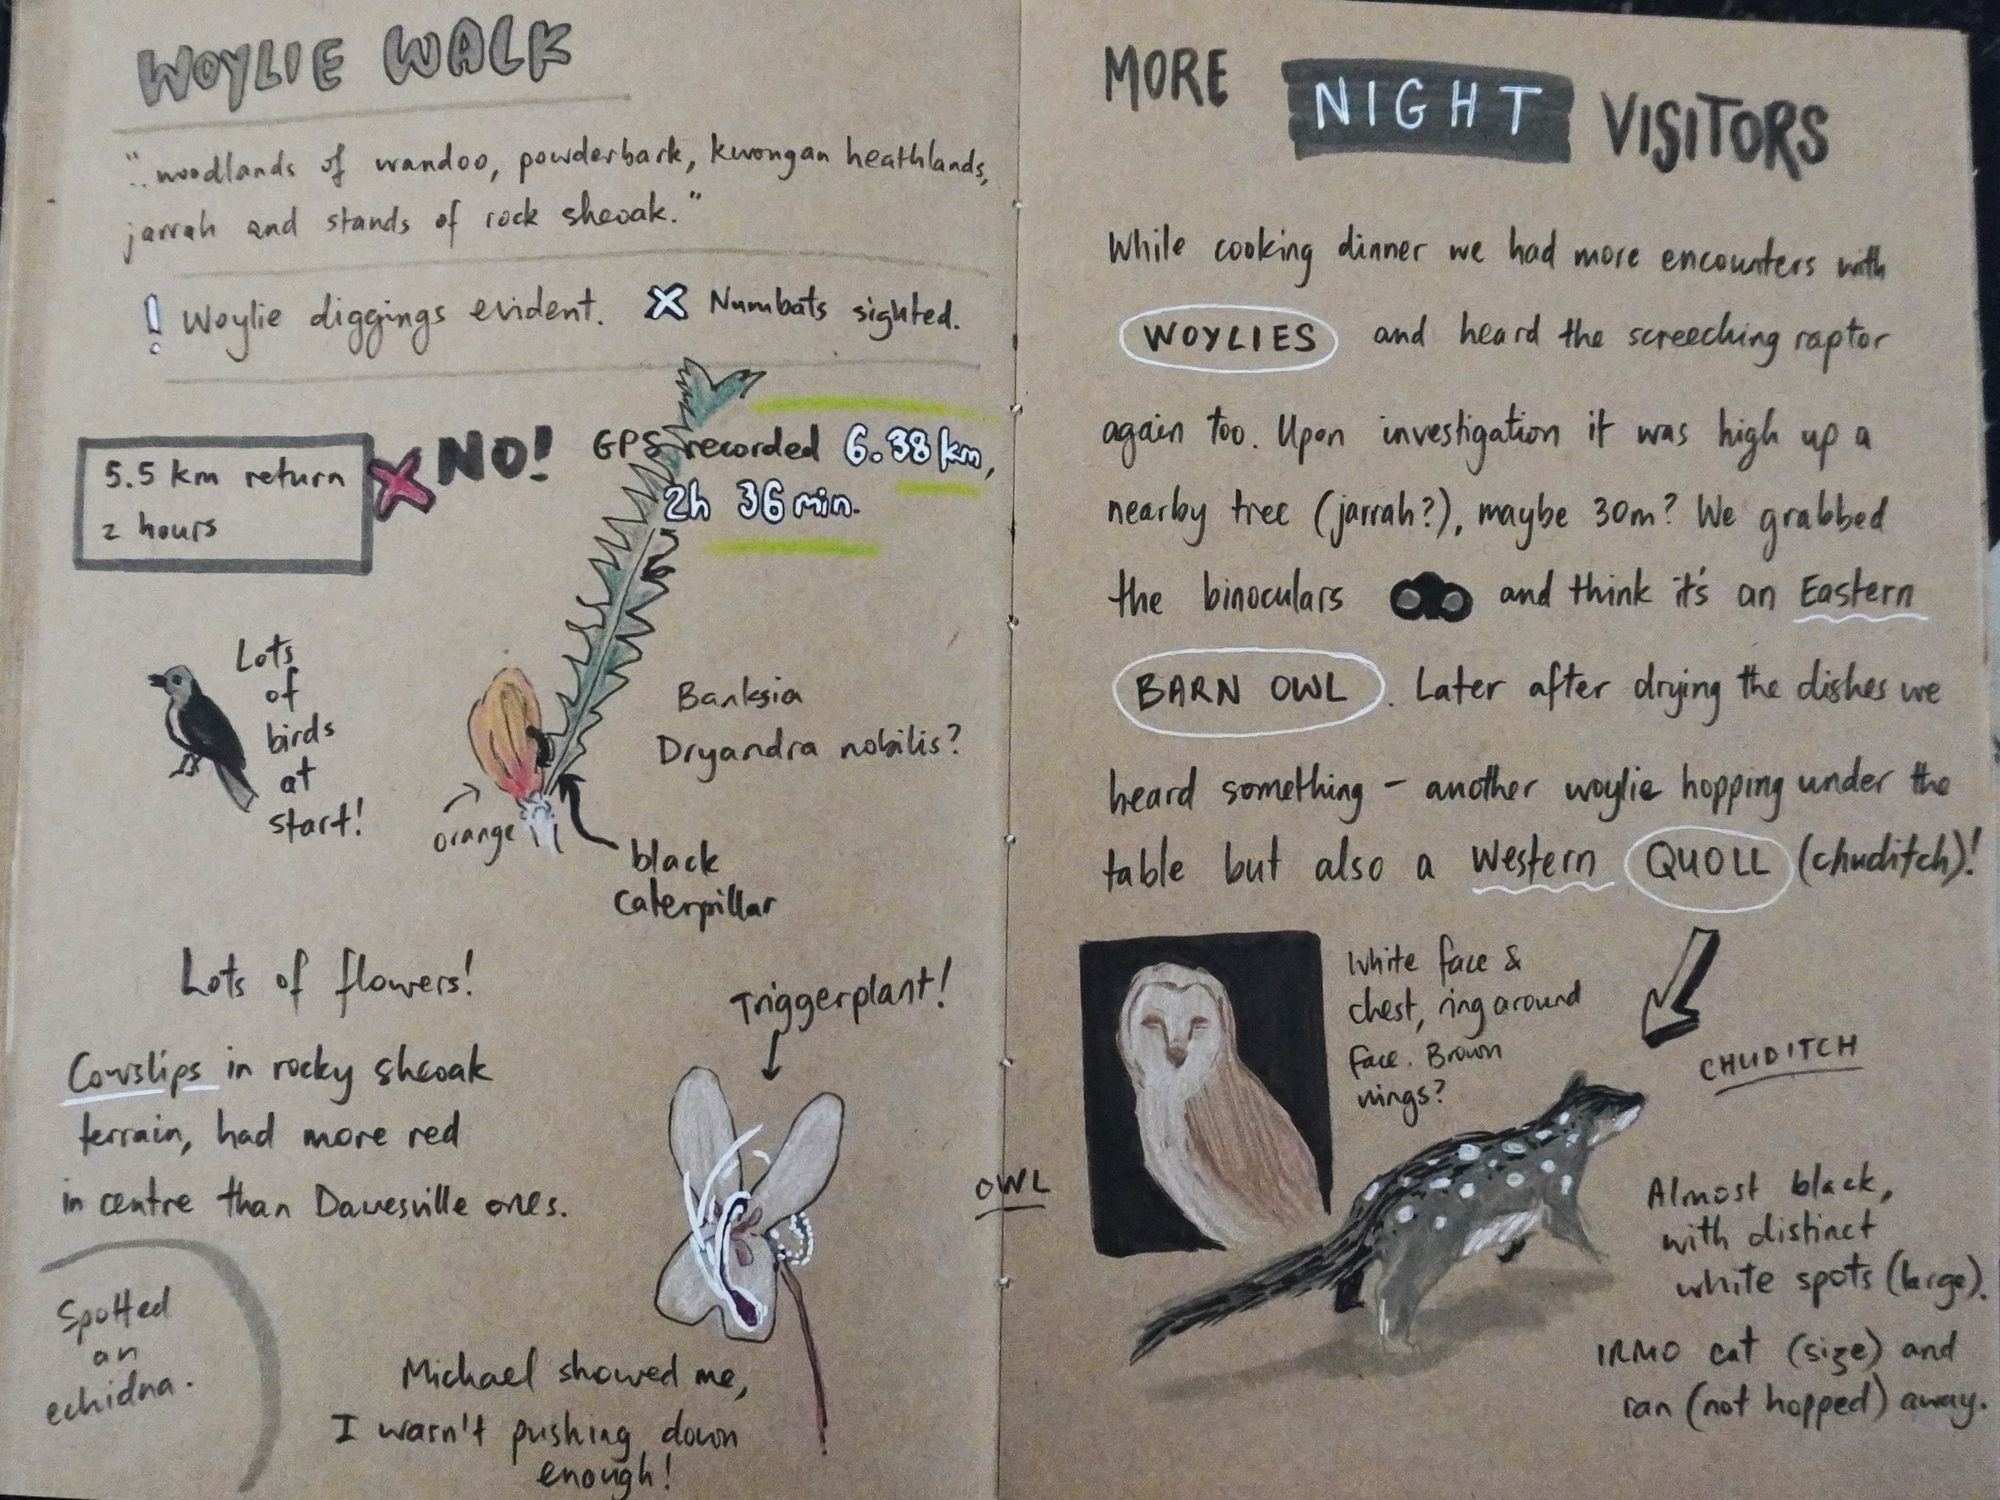 WOYLIE WALK
"..woodlands of wandoo, powderbark, kwongan heathlands,
jarrah and stands of rock sheoak."
! Woylie diggings evident. X Numbats sighted.
5.5 km return
2 hours
X NO!
GPS recorded 6.38 km,
2h 36 min.
Lots
of
birds
at
start!
Banksia
Dryandra nobilis?
orange
black
caterpillar
Lots of flowers!
Triggerplant!
Cowslips in rocky sheoak
terrain, had more red
in centre than Dawesville ones.
Spotted
an
echidna.
Michael showed me,
I wasn't pushing down
enough!
MORE NIGHT VISITORS
While cooking dinner we had more encounters with
WOYLIES and heard the screeching raptor
again too. Upon investigation it was high up a
nearby tree (jarrah?), maybe 30m? We grabbed
the binoculars and think it's an Eastern
BARN OWL. Later after drying the dishes we
heard something - another woylie hopping under the
table but also a Western QUOLL (chuditch)!
White face &
chest, ring around
face. Brown
wings?
OWL
CHUDITCH
Almost black,
with distinct
white spots (large).
IRMO cat (size) and
ran (not hopped) away.